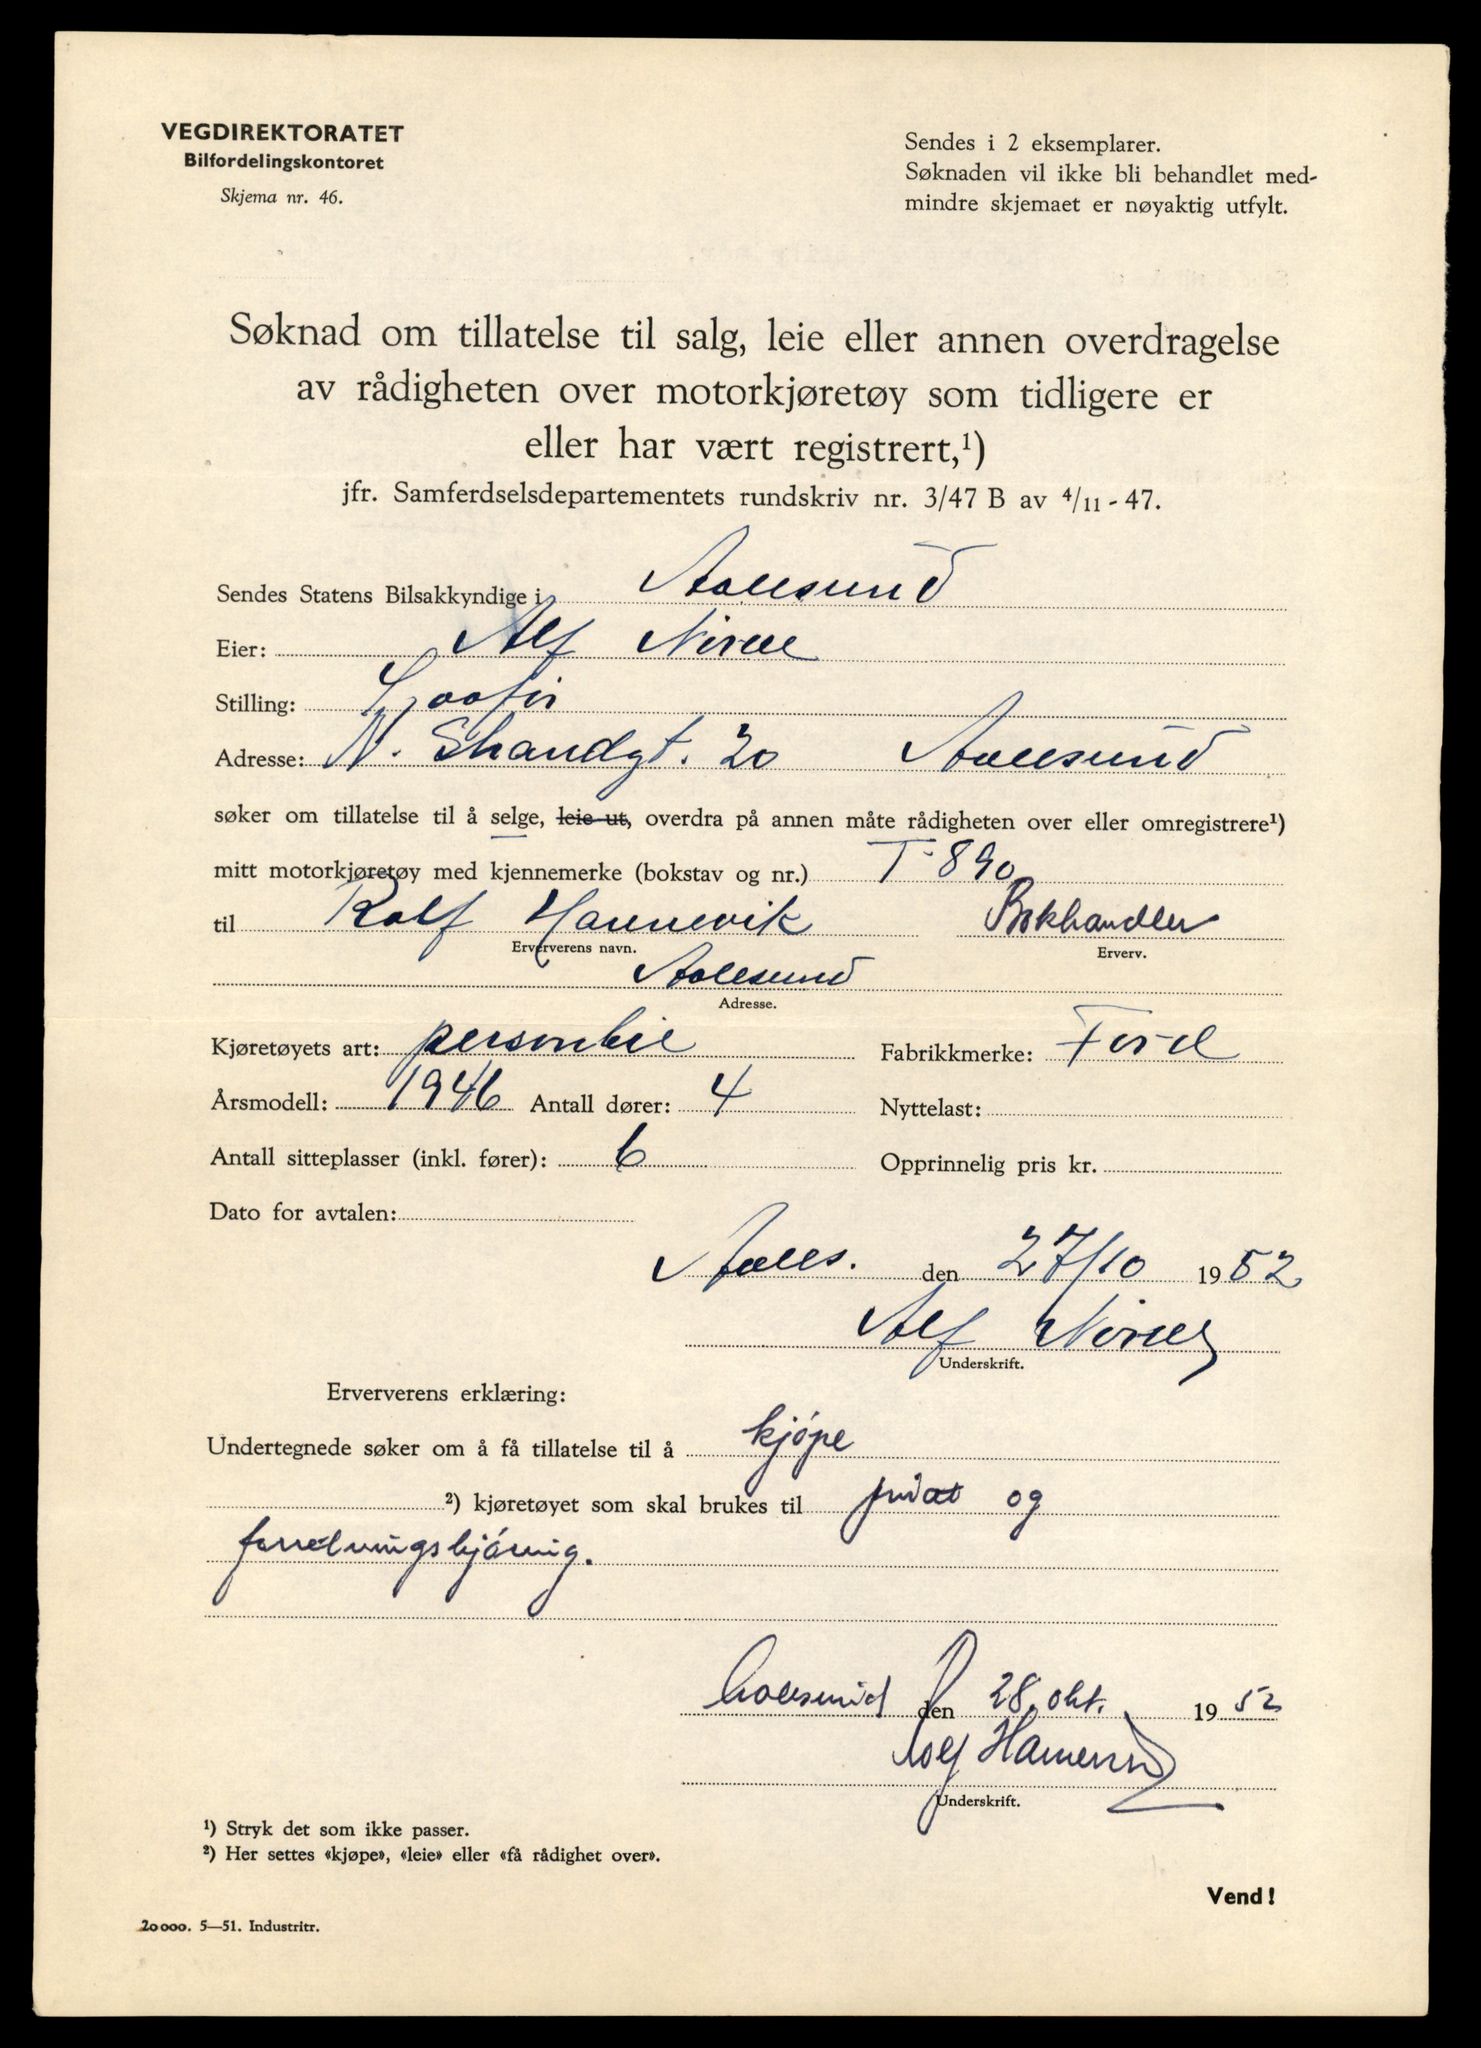 VEGDIREKTORATET
Bilfordelingskontoret
Skjema nr. 46.
Sendes i 2 eksemplarer.
Søknaden vil ikke bli behandlet med-
mindre skjemaet er nøyaktig utfylt.
Søknad om tillatelse til salg, leie eller annen overdragelse
av rådigheten over motorkjøretøy som tidligere er
eller har vært registrert,¹)
jfr. Samferdselsdepartementets rundskriv nr. 3/47 B av 4/11 - 47.
Sendes Statens Bilsakkyndige i Aalesund
Eier: Alf
Stilling:
Adresse: N. Strandgt. 20 Aalesund
søker om tillatelse til å selge, leie ut, overdra på annen måte rådigheten over eller omregistrere¹)
mitt motorkjøretøy med kjennemerke (bokstav og nr.) T-890
til Rolf Hannevik Bokhandler
Erververens navn. Erverv.
Aalesund
Adresse.
Kjøretøyets art: personbil Fabrikkmerke: Ford
Årsmodell: 1946 Antall dører: 4 Nyttelast:
Antall sitteplasser (inkl. fører): 6 Opprinnelig pris kr.
Dato for avtalen:
Aales. den 27/10 1952
Alf
Underskrift.
Erververens erklæring:
Undertegnede søker om å få tillatelse til å kjøpe
²) kjøretøyet som skal brukes til privat og
forretningskjøring.
Aalesund den 28. okt. 1952
Rolf Hannevik
Underskrift.
¹) Stryk det som ikke passer.
²) Her settes «kjøpe», «leie» eller «få rådighet over».
Vend!
20000. 5—51. Industritr.